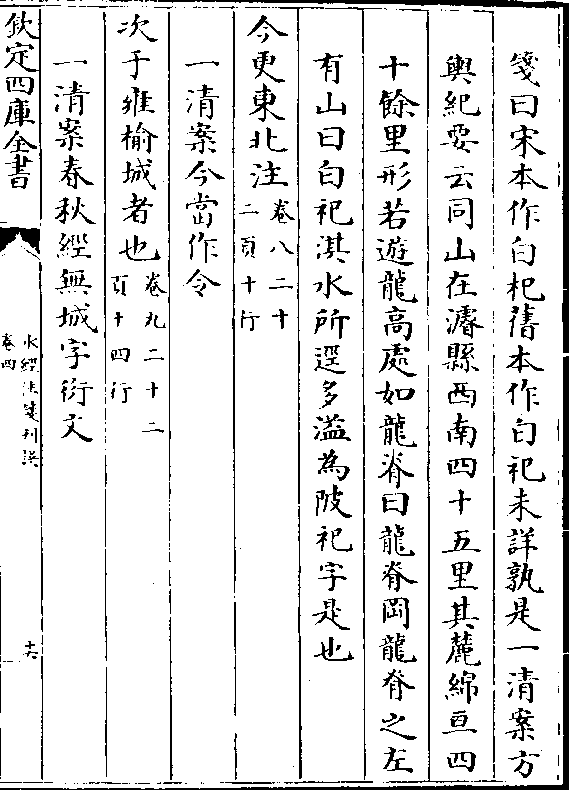 箋曰宋本作白杞舊本作白祀未詳孰是一清案方
輿紀要云同山在濬縣西南四十五里其麓綿亘四
十餘里形若遊龍高處如龍脊曰龍脊岡龍脊之左
有山曰白祀淇水所逕多溢為陂祀字是也
今更東北注卷八二十二頁十行
一清案今當作令
次于雍榆城者也卷九二十二頁十四行
一清案春秋經無城字衍文
欽定四庫全書
水經注箋刊誤
卷四
十六